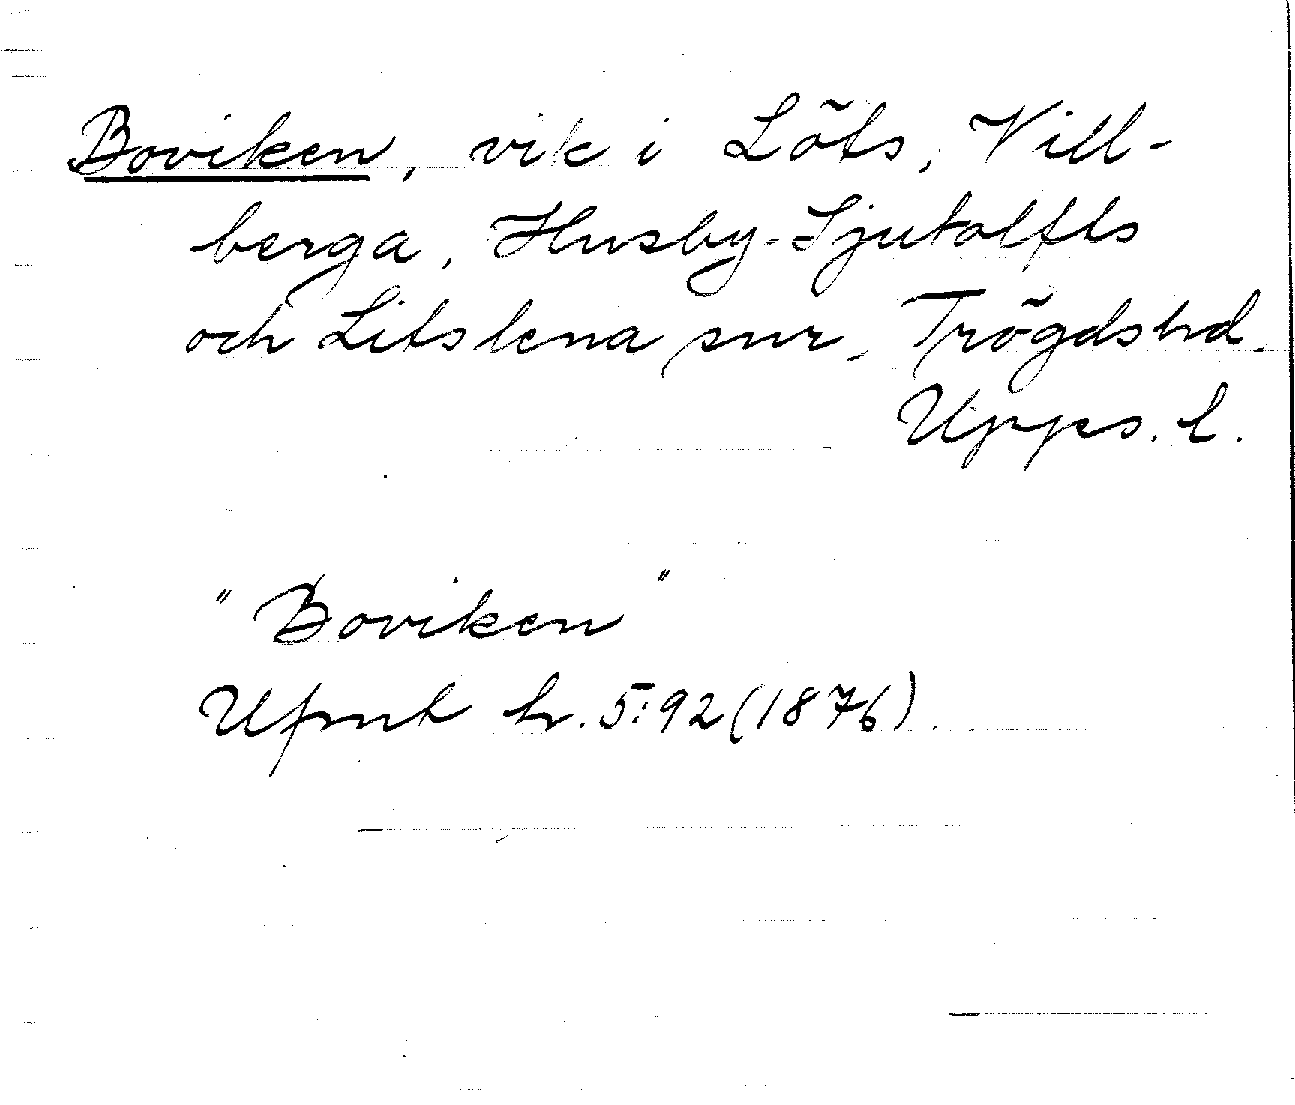 Boviken, vik i Löts, Vill-
berga, Husby-Sjutolfts
och Litslena snr, Trögds hd.
Upps. l.
"Boviken"
Ufmt h. 5:92 (1876).